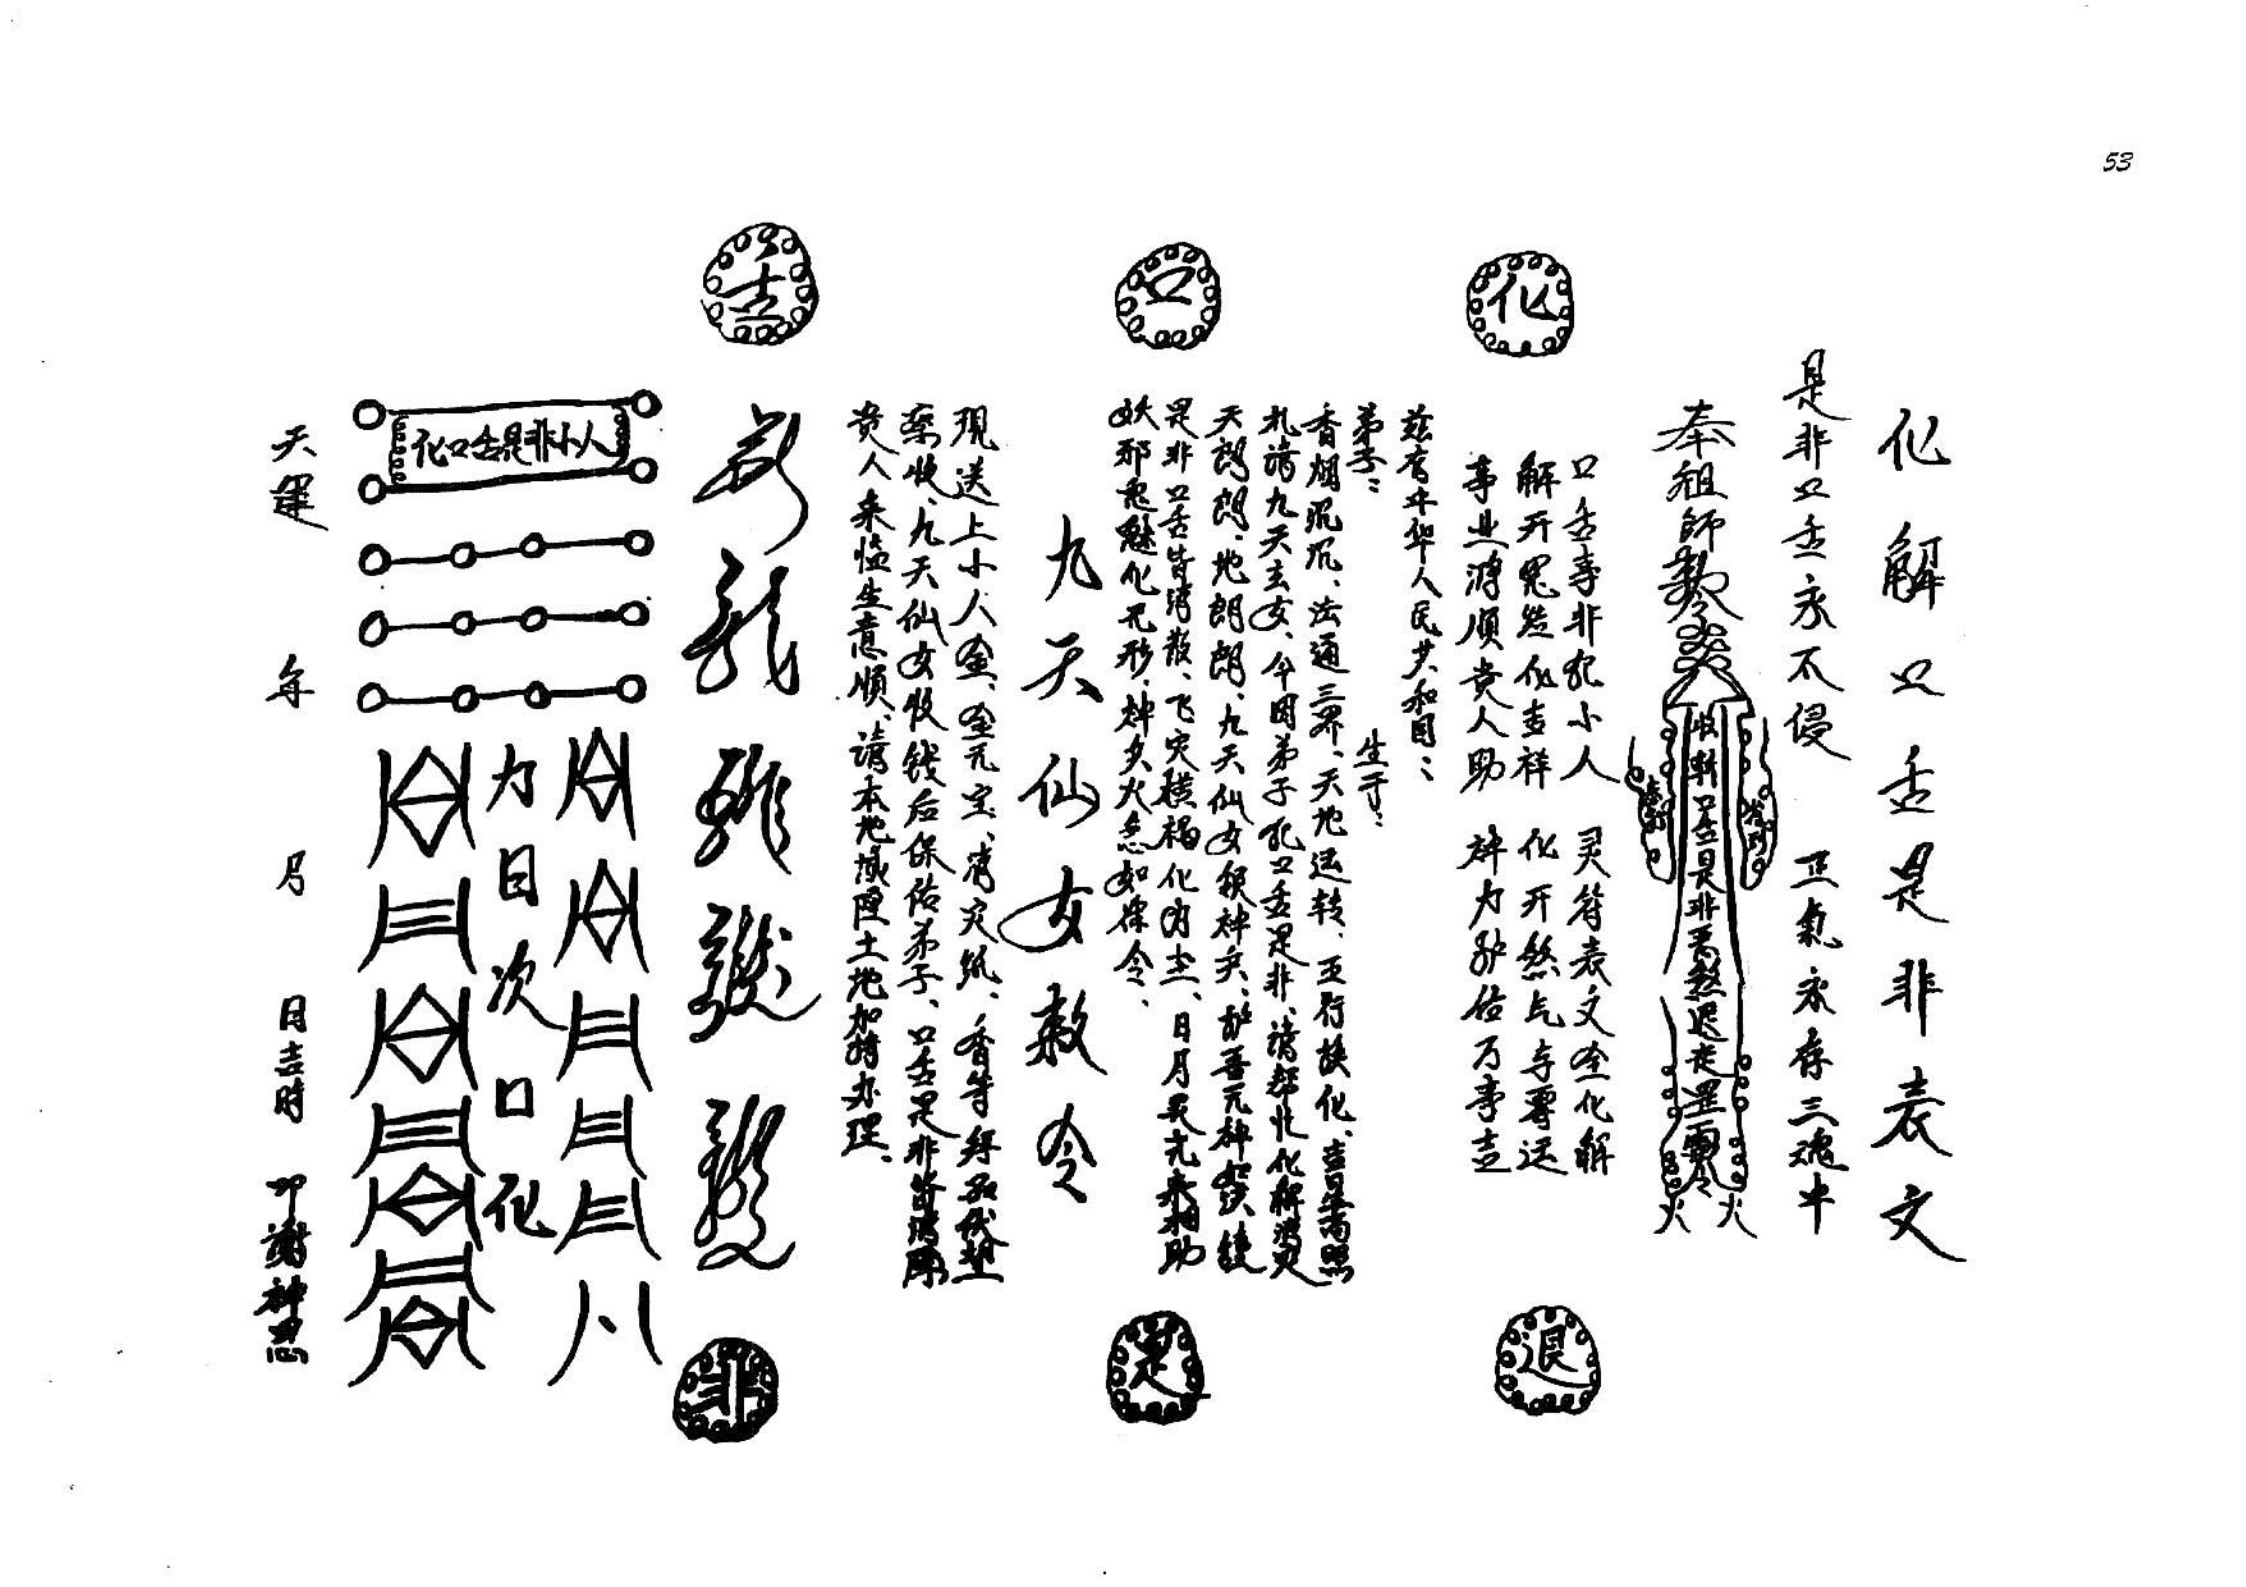 53
化解口舌是非表文
是非口舌永不侵 正氣永存三魂中
奉祖師敕令
收斩口舌是非恶煞退走罡
火 火
口舌事非犯小人 灵符表文全化解
解开冤怨化吉祥 化开煞气专要运
事业滑顺贵人助 神力护佑万事吉
兹有中华人民共和国：
弟子： 生于：
香烟沉沉、法通三界、天地运转、五行扶化、吉星高照
礼请九天玄女、今因弟子犯口舌是非、请帮忙化解消灾
天朗朗、地朗朗、九天仙女领神兵、护善元神
是非口舌皆消散、飞灾横祸化为尘、日月灵光来相助
妖邪鬼魅化无形、神火急如律令、
九天仙女敕令
现送上小人金、金元宝、消灾纸、香等
察收、九天仙女收钱后保佑弟子、口舌是非皆消除
贵人来临生意顺、请本地城隍土地加持办理、
化口舌是非小人
力日次口化
天運 年 月 日吉時 叩謝神恩
化
口
吉
退
是
非